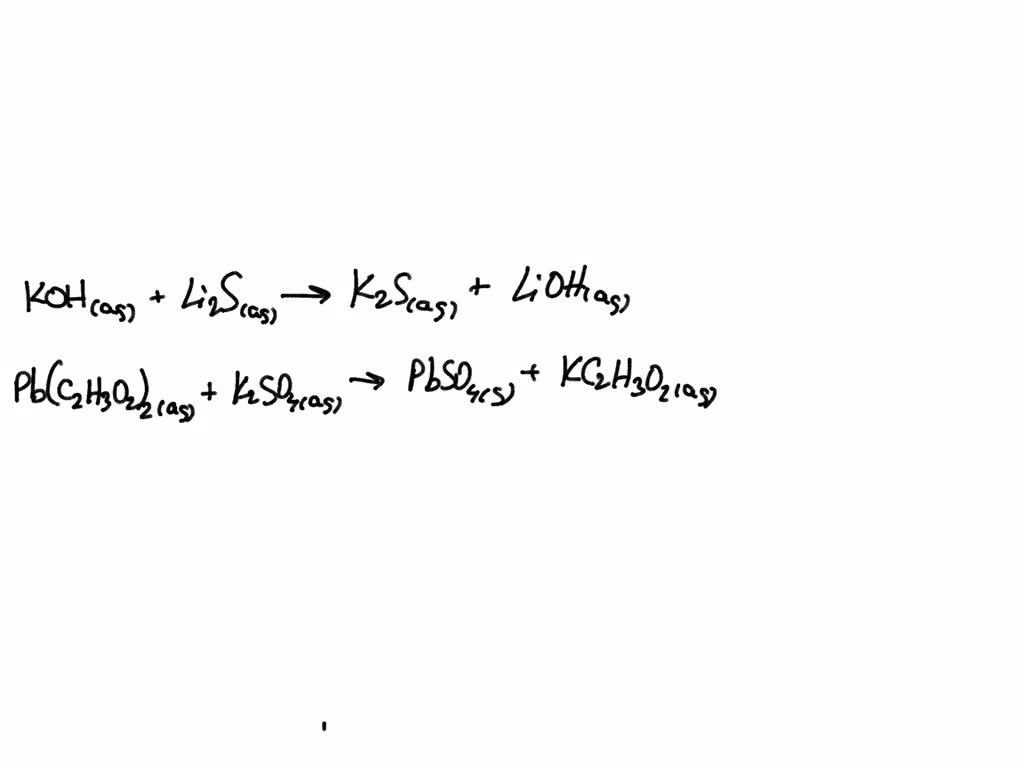 KOH(aq) + Li2S(aq) → K2S(aq) + LiOH(aq)
Pb(C2H3O2)2(aq) + K2SO4(aq) → PbSO4(s) + KC2H3O2(aq)